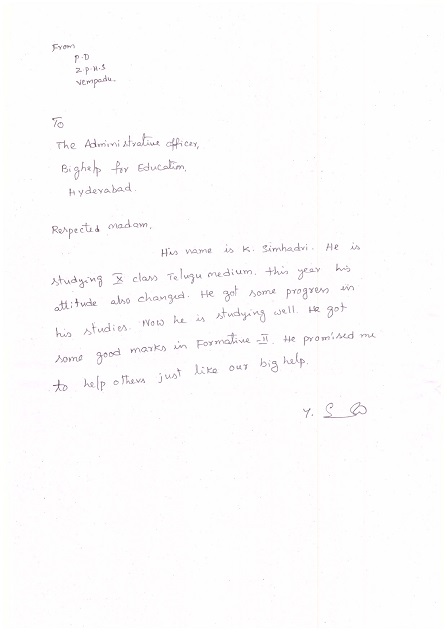 From
P.D
Z.P.H.S
Vempadu.
To
The Administrative officer,
Bighelp for Education,
Hyderabad.
Respected madam,
His name is K. Simhadri. He is
studying X class Telugu medium. this year his
attitude also changed. He got some progress in
his studies. Now he is studying well. He got
some good marks in Formative-II. He promised me
to help others just like our big help.
Y. S